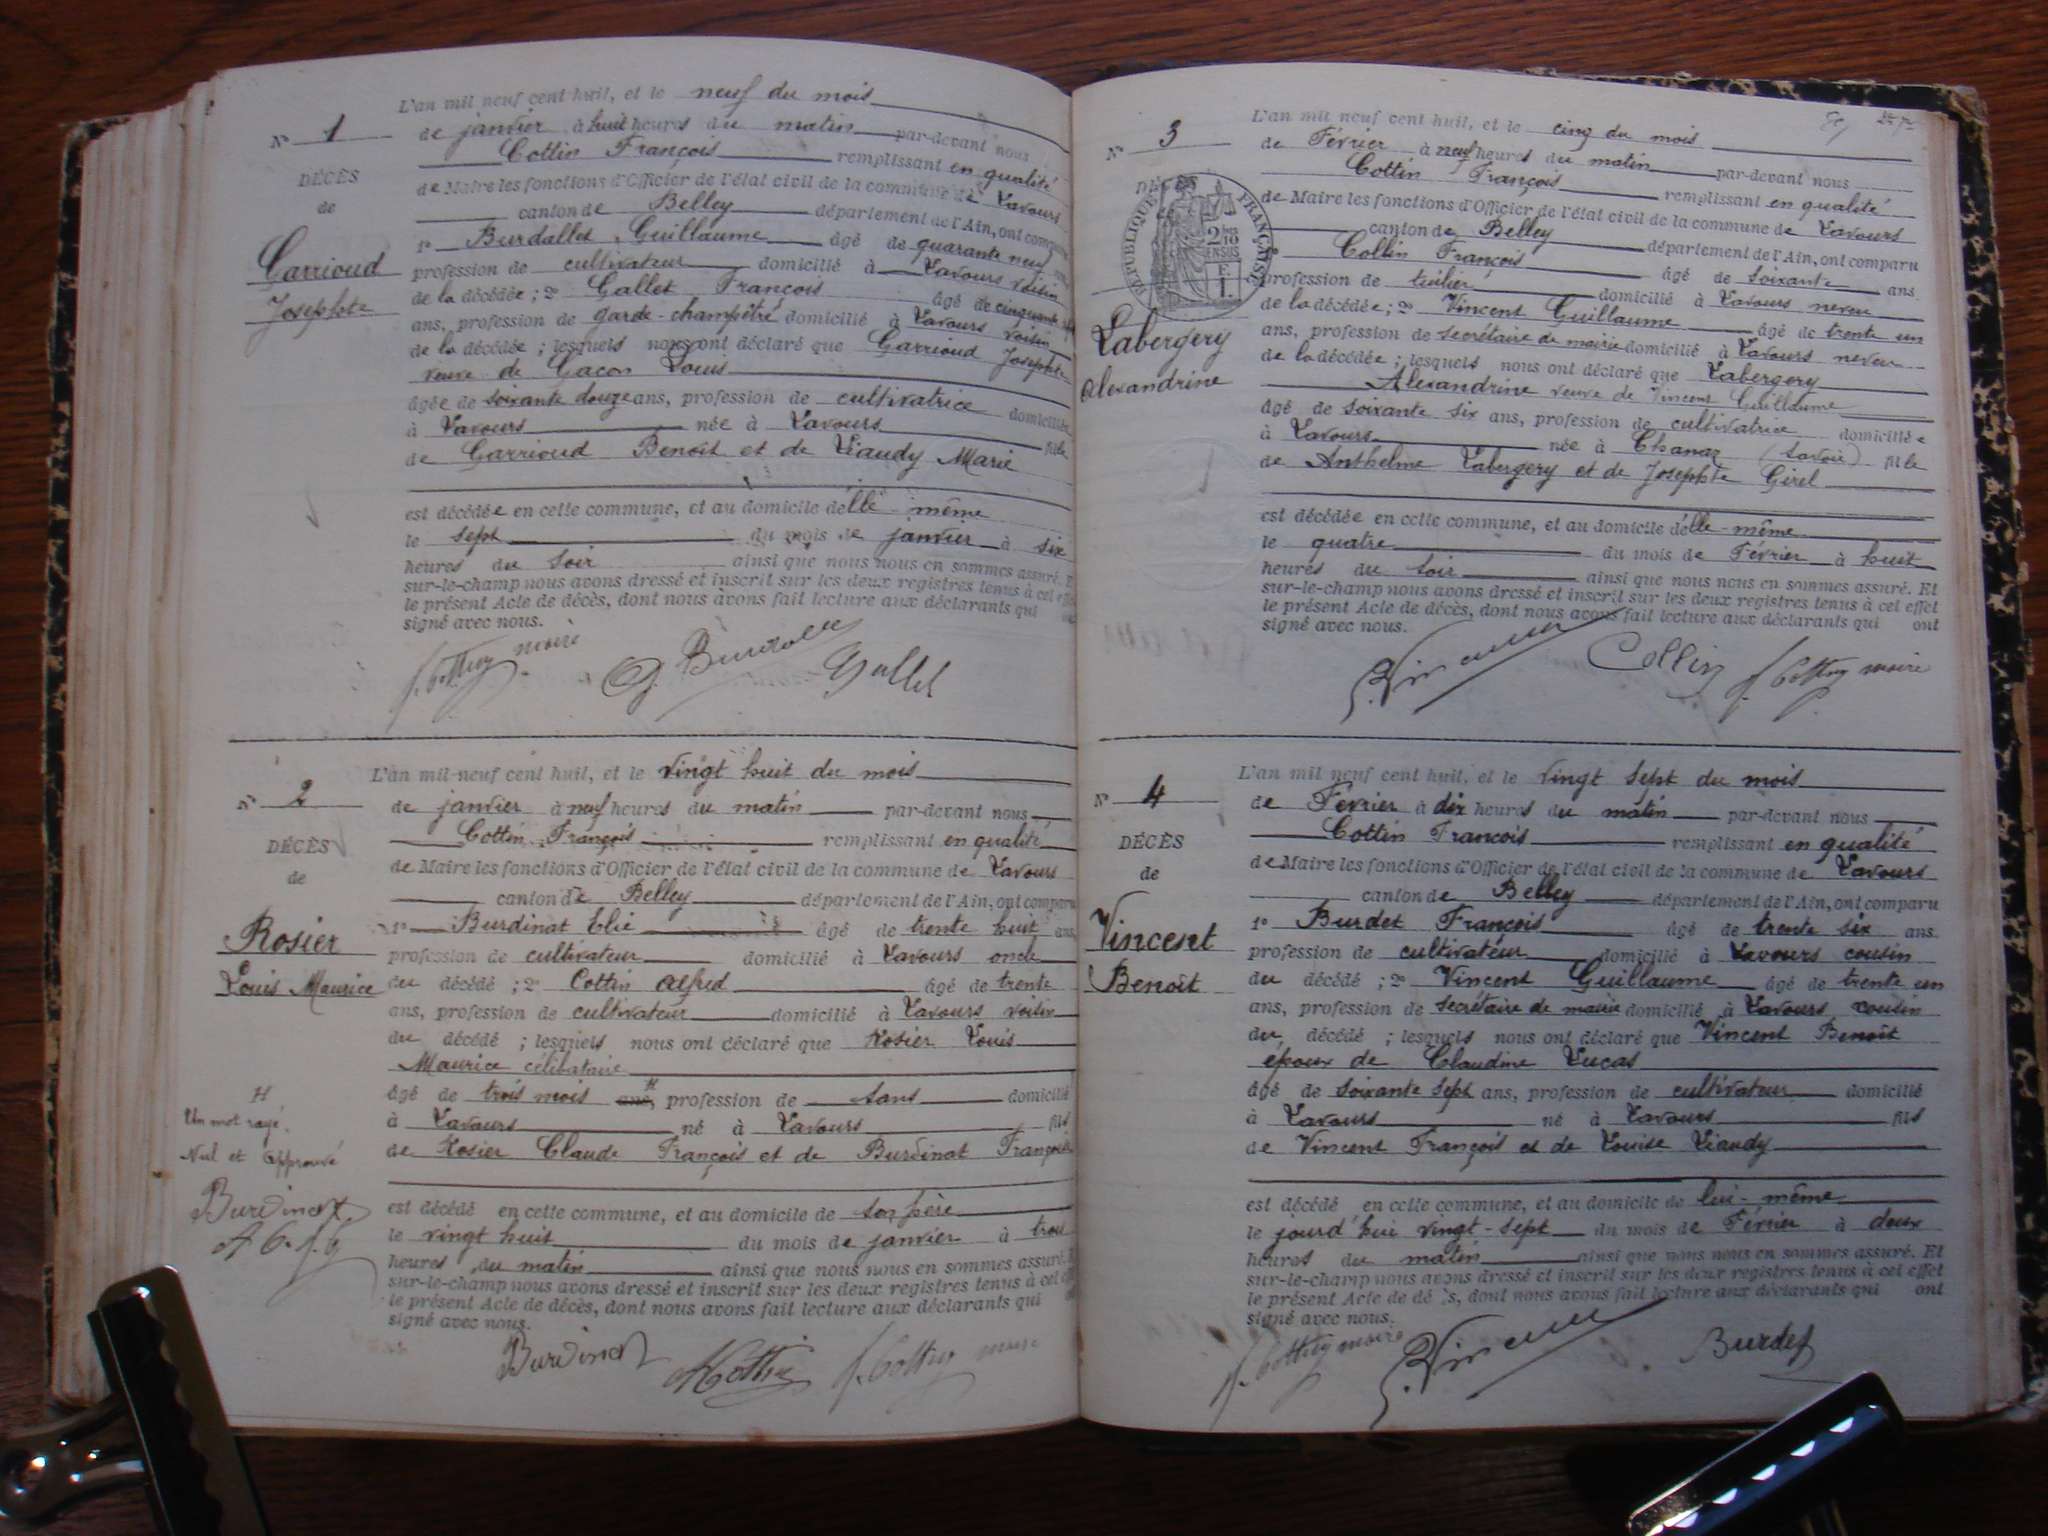 L'an mil neuf cent huit, et le neuf du mois
de janvier à huit heures du matin par-devant nous
Cottin François remplissant en qualité
de Maire les fonctions d'Officier de l'état civil de la commune de Lavours
canton de Belley département de l'Ain, ont comparu
1º Burdallet Guillaume âgé de quarante neuf
profession de cultivateur domicilié à Lavours voisin
de la décédée ; 2º Gallet François âgé de cinquante
ans, profession de garde-champêtre domicilié à Lavours voisin
de la décédée ; lesquels nous ont déclaré que Garrioud Josephte
veuve de Gacon Louis
âgée de soixante douze ans, profession de cultivatrice domiciliée
à Lavours née à Lavours fille
de Garrioud Benoît et de Liaudy Marie
est décédée en cette commune, et au domicile d'elle-même
le sept du mois de janvier à six
heures du soir ainsi que nous nous en sommes assuré. Et
sur-le-champ nous avons dressé et inscrit sur les deux registres tenus à cet effet
le présent Acte de décès, dont nous avons fait lecture aux déclarants qui
signé avec nous.
Nº 1
DÉCÈS
de
Garrioud
Josephte
f. Cottin maire G. Burdallet Gallet
L'an mil neuf cent huit, et le vingt huit du mois
de janvier à neuf heures du matin par-devant nous
Cottin François remplissant en qualité
de Maire les fonctions d'Officier de l'état civil de la commune de Lavours
canton de Belley département de l'Ain, ont comparu
1º Burdinat Elie âgé de trente huit ans
profession de cultivateur domicilié à Lavours oncle
du décédé ; 2º Cottin Alfred âgé de trente
ans, profession de cultivateur domicilié à Lavours voisin
du décédé ; lesquels nous ont déclaré que Rosier Louis
Maurice célibataire
âgé de trois mois ans, profession de sans domicilié
à Lavours né à Lavours fils
de Rosier Claude François et de Burdinat Françoise
est décédé en cette commune, et au domicile de son père
le vingt huit du mois de janvier à trois
heures du matin ainsi que nous nous en sommes assuré. Et
sur-le-champ nous avons dressé et inscrit sur les deux registres tenus à cet effet
le présent Acte de décès, dont nous avons fait lecture aux déclarants qui
signé avec nous.
Nº 2
DÉCÈS
de
Rosier
Louis Maurice
Un mot rayé.
Nul et approuvé
Burdinat
A C. f. C
Burdinat A Cottin f. Cottin maire
L'an mil neuf cent huit, et le cinq du mois
de Février à neuf heures du matin par-devant nous
Cottin François remplissant en qualité
de Maire les fonctions d'Officier de l'état civil de la commune de Lavours
canton de Belley département de l'Ain, ont comparu
Collin François âgé de soixante ans.
profession de tuilier domicilié à Lavours neveu
de la décédée ; 2º Vincent Guillaume âgé de trente un
ans, profession de secrétaire de mairie domicilié à Lavours neveu
de la décédée ; lesquels nous ont déclaré que Labergery
Alexandrine veuve de Vincent Guillaume
âgé de soixante six ans, profession de cultivatrice domiciliée
à Lavours née à Chanaz (Savoie) fille
de Anthelme Labergery et de Josephte Girel
est décédée en cette commune, et au domicile d'elle-même
le quatre du mois de Février à huit
heures du soir ainsi que nous nous en sommes assuré. Et
sur-le-champ nous avons dressé et inscrit sur les deux registres tenus à cet effet
le présent Acte de décès, dont nous avons fait lecture aux déclarants qui ont
signé avec nous.
Nº 3
RÉPUBLIQUE FRANÇAISE
Labergery
Alexandrine
G. Vincent Collin f. Cottin maire
L'an mil neuf cent huit, et le vingt sept du mois
de Février à dix heures du matin par-devant nous
Cottin François remplissant en qualité
de Maire les fonctions d'Officier de l'état civil de la commune de Lavours
canton de Belley département de l'Ain, ont comparu
1º Burdet François âgé de trente six ans.
profession de cultivateur domicilié à Lavours cousin
du décédé ; 2º Vincent Guillaume âgé de trente un
ans, profession de secrétaire de mairie domicilié à Lavours cousin
du décédé ; lesquels nous ont déclaré que Vincent Benoît
époux de Claudine Lucas
âgé de soixante sept ans, profession de cultivateur domicilié
à Lavours né à Lavours fils
de Vincent François et de Louise Liaudy
est décédé en cette commune, et au domicile de lui-même
le jourd'hui vingt-sept du mois de Février à deux
heures du matin ainsi que nous nous en sommes assuré. Et
sur-le-champ nous avons dressé et inscrit sur les deux registres tenus à cet effet
le présent Acte de décès, dont nous avons fait lecture aux déclarants qui ont
signé avec nous.
Nº 4
DÉCÈS
de
Vincent
Benoît
f. Cottin maire G. Vincent Burdet